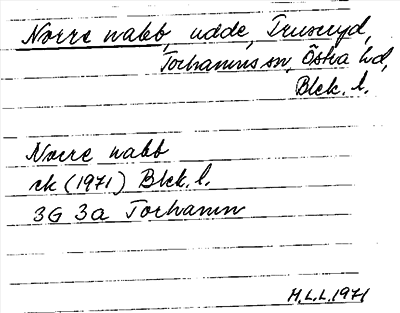 Norre nabb, udde, Truseryd,
Torhamns sn, Östra hd,
Blek. l.
Norre nabb
rk (1971) Blek. l.
3G 3a Torhamn
M.L.L. 1971